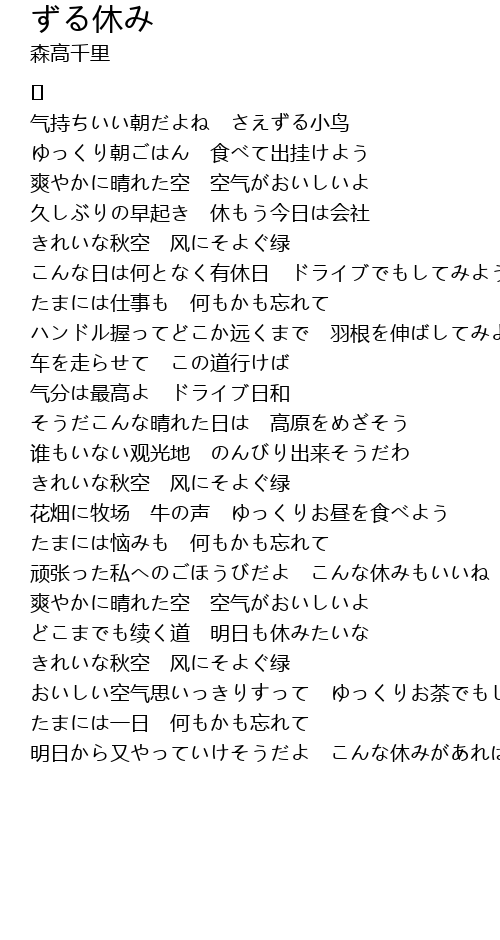 ずる休み
森高千里
气持ちいい朝だよね　さえずる小鸟
ゆっくり朝ごはん　食べて出挂けよう
爽やかに晴れた空　空气がおいしいよ
久しぶりの早起き　休もう今日は会社
きれいな秋空　风にそよぐ绿
こんな日は何となく有休日　ドライブでもしてみよう
たまには仕事も　何もかも忘れて
ハンドル握ってどこか远くまで　羽根を伸ばしてみよ
车を走らせて　この道行けば
气分は最高よ　ドライブ日和
そうだこんな晴れた日は　高原をめざそう
谁もいない观光地　のんびり出来そうだわ
きれいな秋空　风にそよぐ绿
花畑に牧场　牛の声　ゆっくりお昼を食べよう
たまには悩みも　何もかも忘れて
顽张った私へのごほうびだよ　こんな休みもいいね
爽やかに晴れた空　空气がおいしいよ
どこまでも续く道　明日も休みたいな
きれいな秋空　风にそよぐ绿
おいしい空气思いっきりすって　ゆっくりお茶でもし
たまには一日　何もかも忘れて
明日から又やっていけそうだよ　こんな休みがあれば